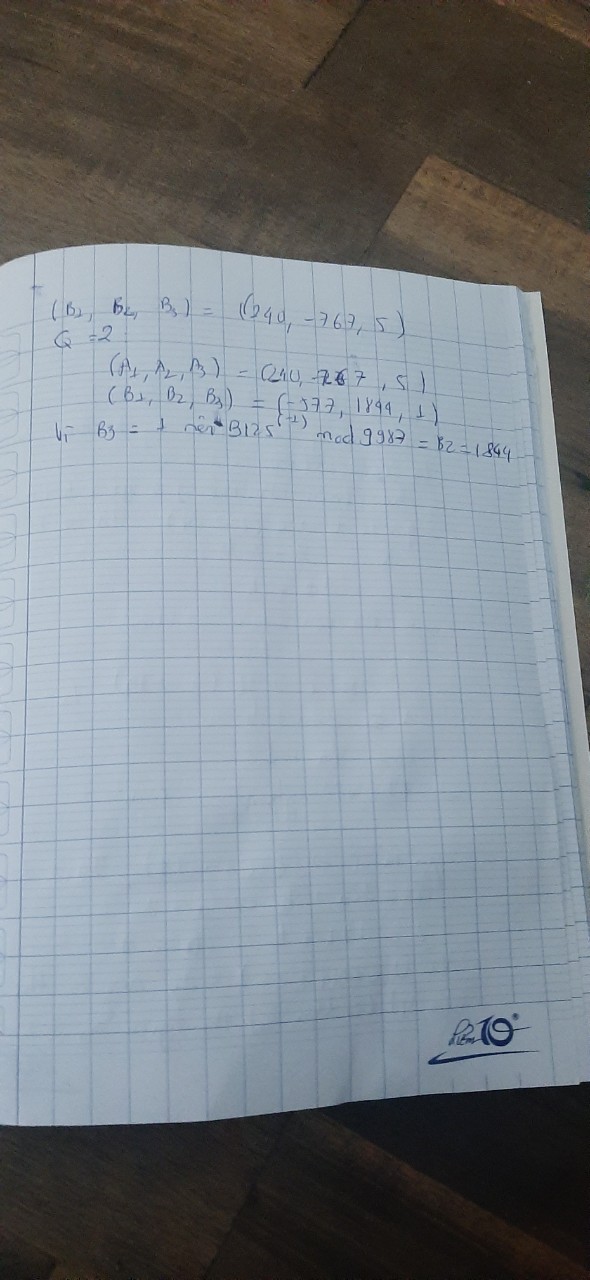 (B1, B2, B3) = (240, -767, 5)
Q = 2
(A1, A2, A3) = (240, -767, 5)
(B1, B2, B3) = (-577, 1844, 1)
Vì B3 = 1 nên 3125^(-1) mod 9987 = B2 = 1844
Điểm 10